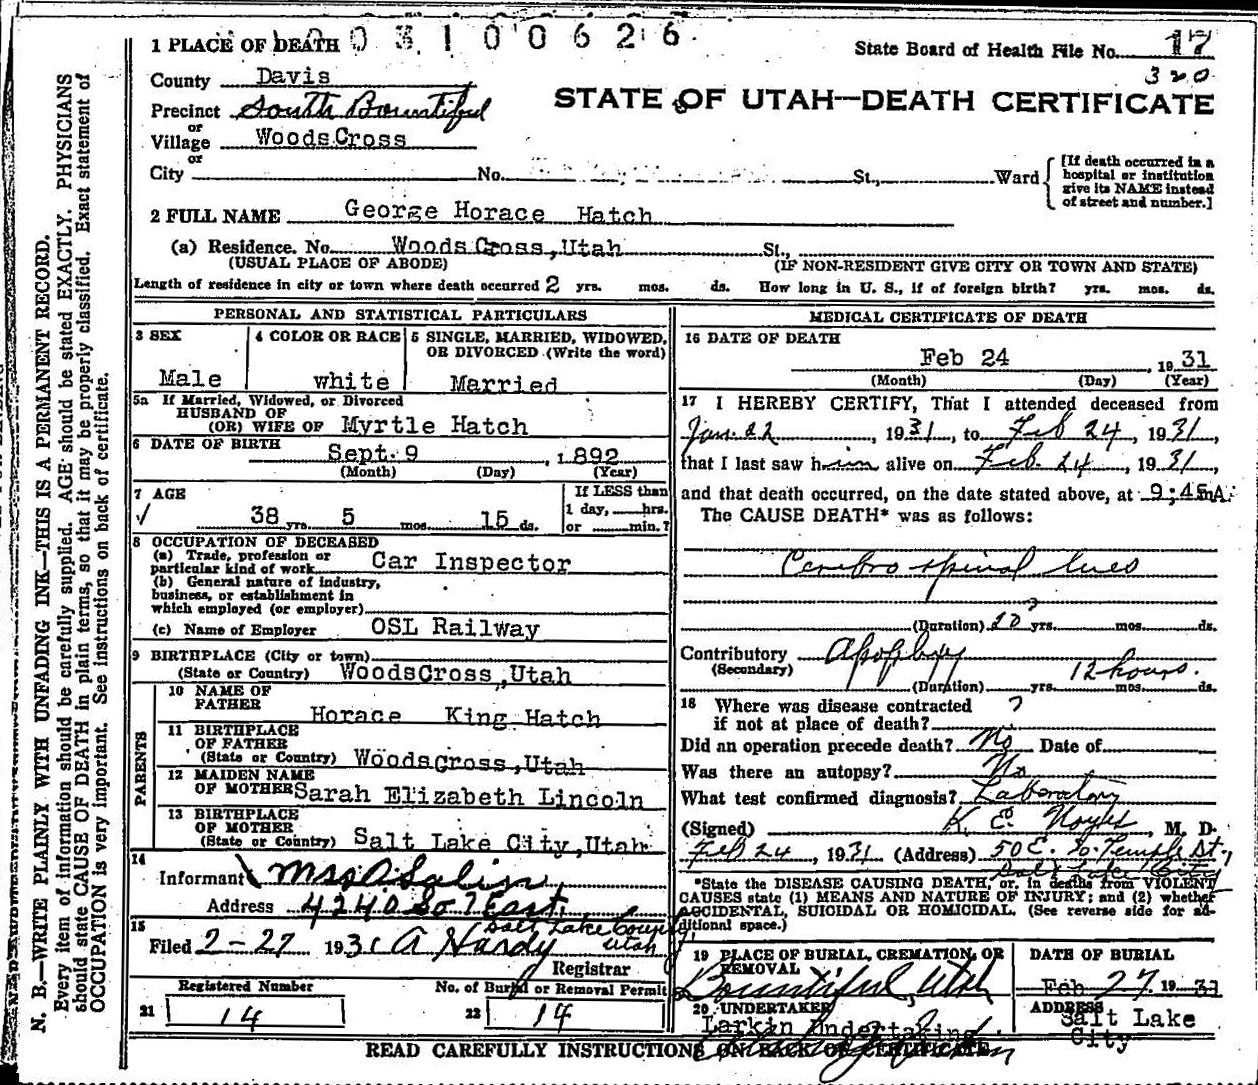 1 PLACE OF DEATH 003100626
State Board of Health File No. 17
320
County Davis
STATE OF UTAH—DEATH CERTIFICATE
Precinct South Bountiful
or
Village WoodsCross
or
City No. St., Ward
[If death occurred in a
hospital or institution
give its NAME instead
of street and number.]
2 FULL NAME George Horace Hatch
(a) Residence. No. WoodsCross,Utah St.,
(USUAL PLACE OF ABODE) (IF NON-RESIDENT GIVE CITY OR TOWN AND STATE)
Length of residence in city or town where death occurred 2 yrs. mos. ds. How long in U. S., if of foreign birth? yrs. mos. ds.
PERSONAL AND STATISTICAL PARTICULARS
3 SEX
Male
4 COLOR OR RACE
white
5 SINGLE, MARRIED, WIDOWED,
OR DIVORCED (Write the word)
Married
5a If Married, Widowed, or Divorced
HUSBAND OF
(OR) WIFE OF Myrtle Hatch
6 DATE OF BIRTH
Sept. 9, 1892
(Month) (Day) (Year)
7 AGE
√ 38 yrs. 5 mos. 15 ds.
If LESS than
1 day, hrs.
or min.?
8 OCCUPATION OF DECEASED
(a) Trade, profession or
particular kind of work Car Inspector
(b) General nature of industry,
business, or establishment in
which employed (or employer)
(c) Name of Employer OSL Railway
9 BIRTHPLACE (City or town)
(State or Country) WoodsCross,Utah
PARENTS
10 NAME OF
FATHER
Horace King Hatch
11 BIRTHPLACE
OF FATHER
(State or Country) WoodsCross,Utah
12 MAIDEN NAME
OF MOTHER Sarah Elizabeth Lincoln
13 BIRTHPLACE
OF MOTHER
(State or Country) Salt Lake City,Utah
14
Informant Mrs A.
Address 4240 So 7 East,
Salt Lake County,
Utah
15
Filed 2-27 1931 A Hardy
Registrar
Registered Number No. of Burial or Removal Permit
21 14 22 14
MEDICAL CERTIFICATE OF DEATH
16 DATE OF DEATH
Feb 24, 1931
(Month) (Day) (Year)
17 I HEREBY CERTIFY, That I attended deceased from
Jan. 22, 1931, to Feb 24, 1931,
that I last saw him alive on Feb. 24, 1931,
and that death occurred, on the date stated above, at 9;45 A.
The CAUSE DEATH* was as follows:
Cerebro spinal lues
?
(Duration) yrs. mos. ds.
Contributory Apoplexy
(Secondary) 12 hours.
(Duration) yrs. mos. ds.
18 Where was disease contracted
if not at place of death? ?
Did an operation precede death? No Date of
Was there an autopsy? No
What test confirmed diagnosis? Laboratory
(Signed) K. E. Noyes, M. D.
Feb 24, 1931 (Address) 50 E. So. Temple St.,
Salt Lake City
*State the DISEASE CAUSING DEATH, or, in deaths from VIOLENT
CAUSES state (1) MEANS AND NATURE OF INJURY; and (2) whether
ACCIDENTAL, SUICIDAL OR HOMICIDAL. (See reverse side for ad-
ditional space.)
19 PLACE OF BURIAL, CREMATION, OR
REMOVAL
Bountiful, Utah
DATE OF BURIAL
Feb 27. 1931
20 UNDERTAKER
Larkin Undertaking
ADDRESS
Salt Lake
City
READ CAREFULLY INSTRUCTIONS ON BACK OF CERTIFICATE
N. B.—WRITE PLAINLY, WITH UNFADING INK—THIS IS A PERMANENT RECORD.
Every item of information should be carefully supplied. AGE should be stated EXACTLY. PHYSICIANS
should state CAUSE OF DEATH in plain terms, so that it may be properly classified. Exact statement of
OCCUPATION is very important. See instructions on back of certificate.